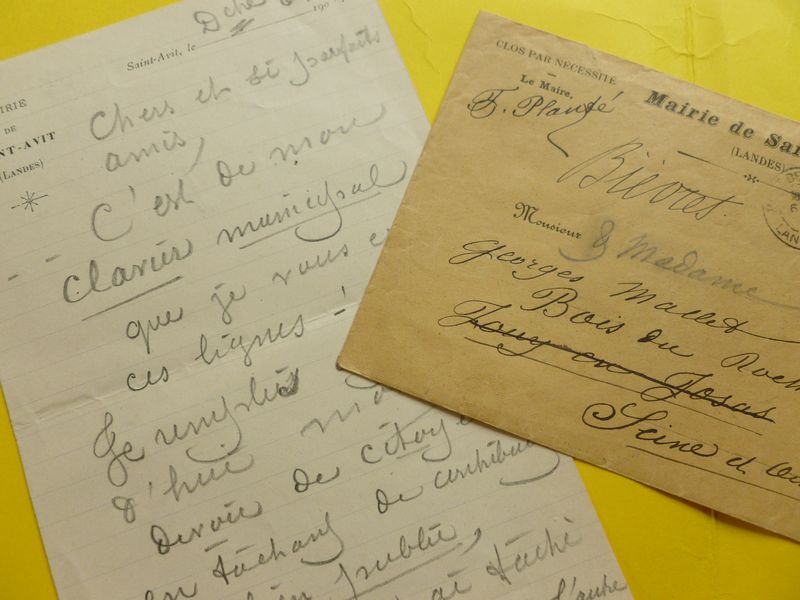 MAIRIE
DE
SAINT-AVIT
(LANDES)
Saint-Avit, le Dche
190
Chers et si parfaits
amis,
C'est de mon
clavier municipal
que je vous
ces lignes !
Je remplis
d'hui
devoir de
en tâchant de
publie,
ai tâché
l'autre
CLOS PAR NÉCESSITÉ
Le Maire,
F. Planté
Mairie de Sai
(LANDES)
Bièvres
Monsieur & Madame
Georges Mallet
Bois du Roch
Jouy en Josas
Seine et Oi